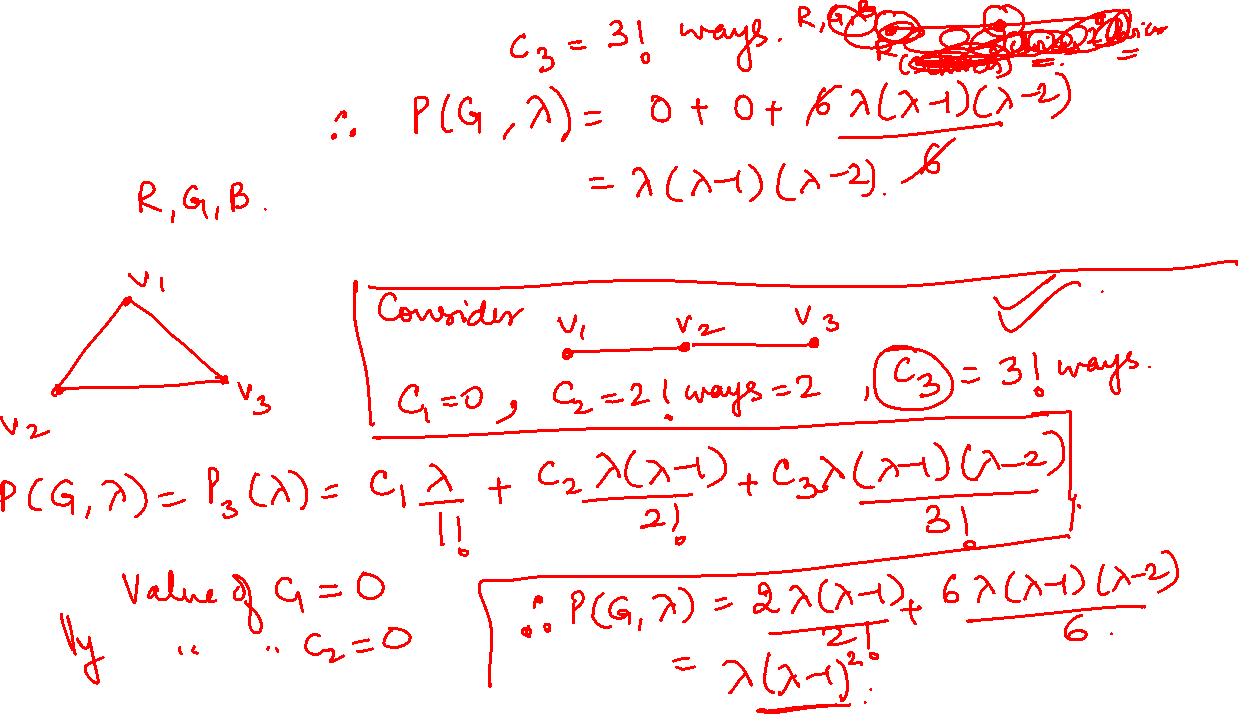 C₃ = 3! ways. R, G, B
R
∴ P(G, λ) = 0 + 0 + 6λ(λ-1)(λ-2) / 6
= λ(λ-1)(λ-2).
R, G, B.
V₁
V₂
V₃
Consider
V₁ V₂ V₃
C₁ = 0, C₂ = 2! ways = 2, C₃ = 3! ways.
P(G, λ) = P₃(λ) = C₁ λ/1! + C₂ λ(λ-1)/2! + C₃ λ(λ-1)(λ-2)/3!
Value of C₁ = 0
lly " " C₂ = 0
∴ P(G, λ) = 2λ(λ-1)/2! + 6λ(λ-1)(λ-2)/6.
= λ(λ-1)².